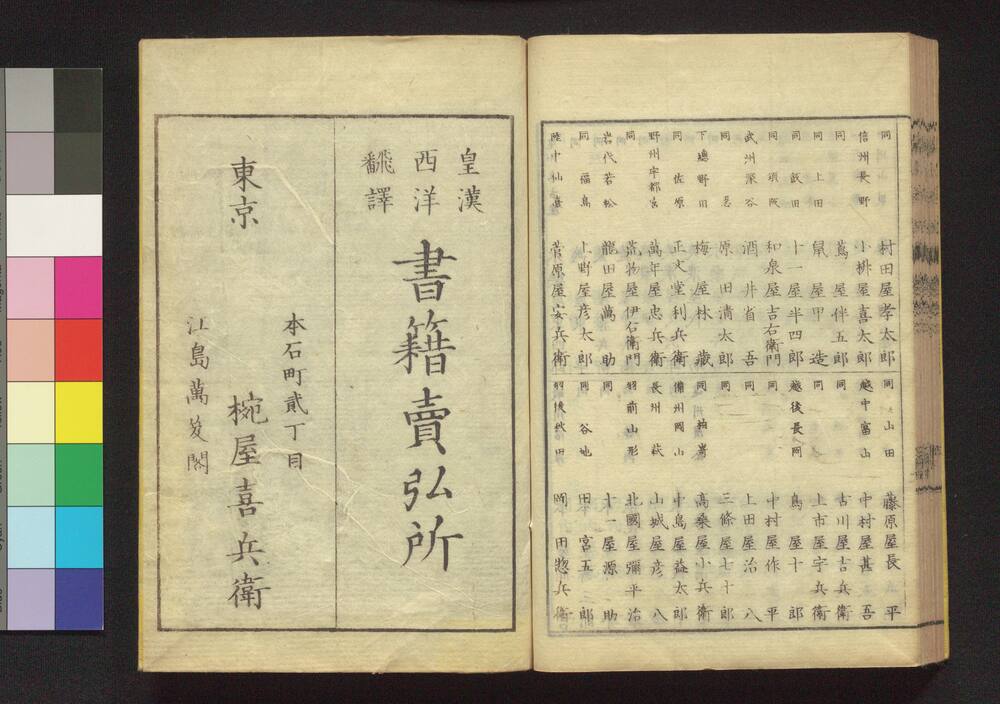 同 村田屋孝太郎
信州長野 小桝屋喜太郎
同 蔦屋伴五郎
同 上田 鼠屋甲造
同 飯田 十一屋半四郎
同 須阪 和泉屋吉右衛門
武州深谷 酒井省吾
同 原田清太郎
下總野田 梅屋林藏
同 佐原 正文堂利兵衛
野州宇都宮 萬年屋忠兵衛
同 荒物屋伊右衛門
岩代若松 龍田屋萬助
同 福島 上野屋彦太郎
陸中仙臺 菅原屋安兵衛
同 山田 藤原屋長平
越中富山 中村屋甚吾
同 古川屋吉兵衛
同 上市屋宇兵衛
越後長岡 鳥屋十郎
同 中村屋作平
同 上田屋治八
同 三條屋七十郎
同 柏嵜 高桑屋小兵衛
備州岡山 中島屋益太郎
長州萩 山城屋彦八
羽前山形 北國屋彌平治
同 十一屋源助
同 谷地 田宮五郎
羽後秋田 岡田惣兵衛
皇漢
西洋
飜譯
書籍賣弘所
東京
本石町貳丁目
椀屋喜兵衛
江島萬笈閣